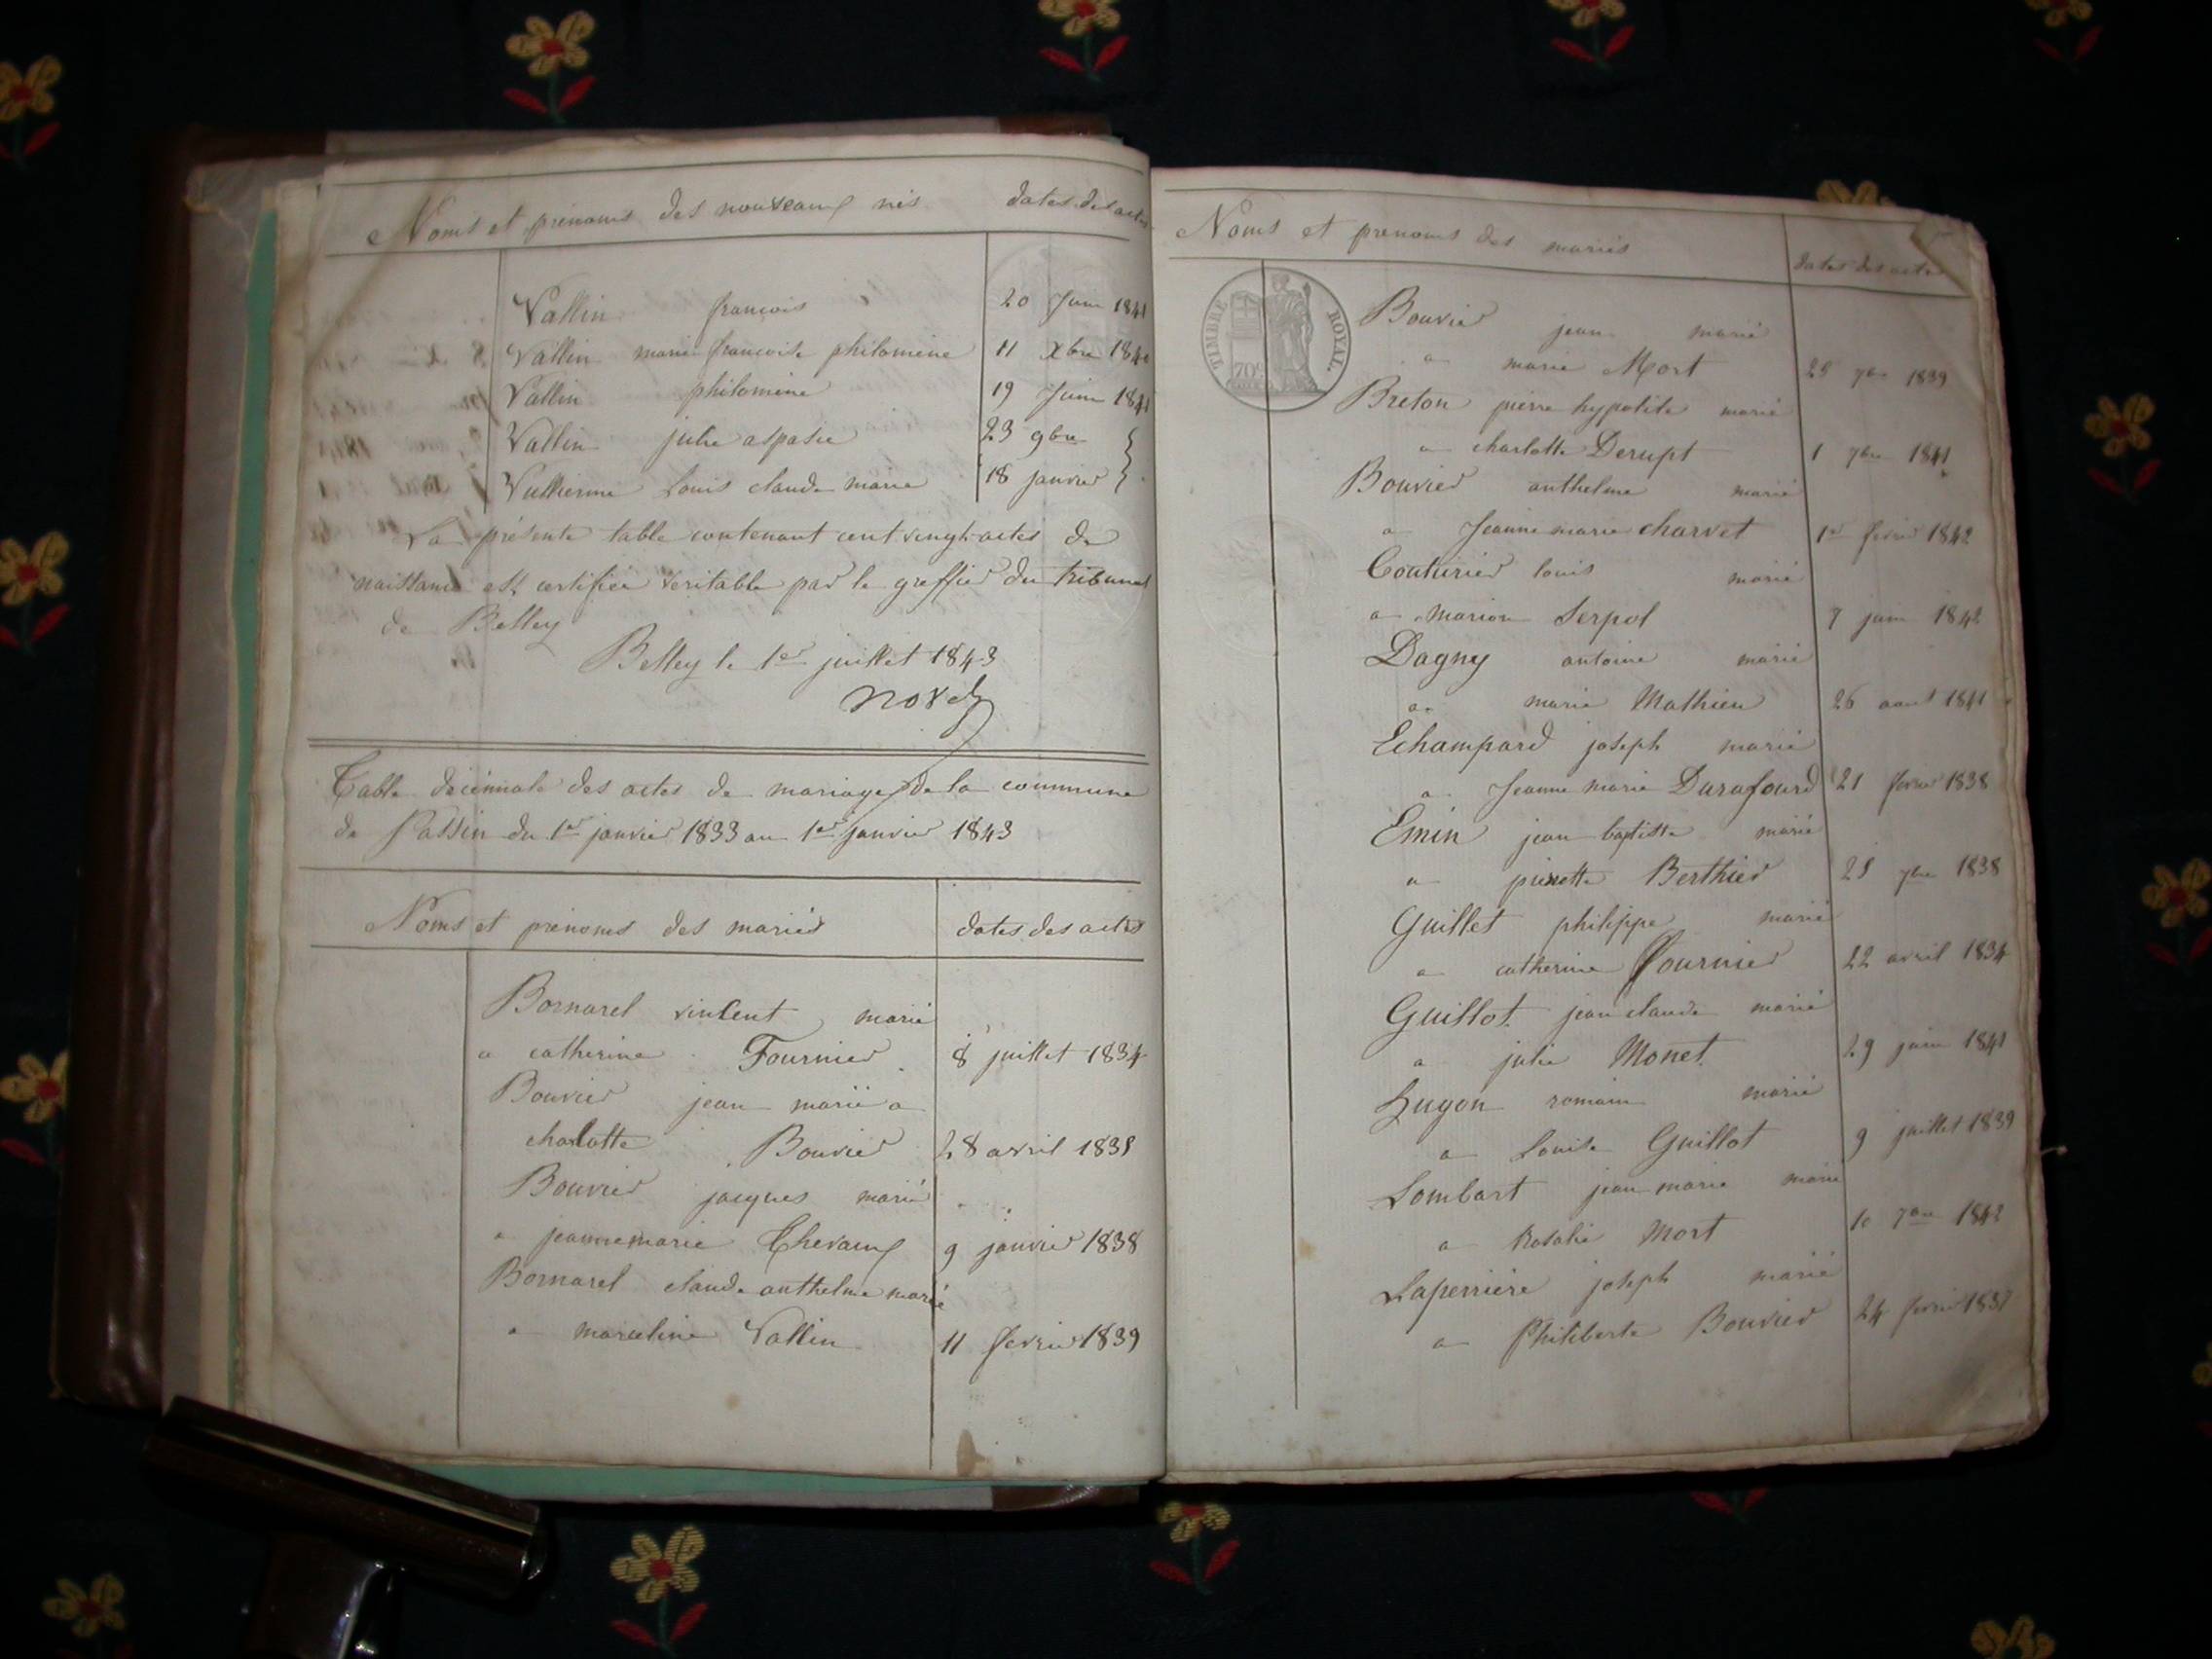 Noms et prénoms des nouveaux nés dates des actes
Vallin françois 20 Juin 1841
Vallin marie françoise philomène 11 Xbre
Vallin philomène 19 Juin 1841
Vallin julie aspasie 23 9bre
Vullierme Louis claude marie 18 janvier
La présente table contenant cent vingt actes de
naissance est certifiée veritable par le greffier du tribunal
de Belley
Belley le 1er juillet 1843
Table décennale des actes de mariage de la commune
de Passin du 1er janvier 1833 au 1er janvier 1843
Noms et prénoms des mariés dates des actes
Bornarel vincent marié
a catherine Fournier 8 juillet 1834
Bouvier jean marié a
charlotte Bouvier 28 avril
Bouvier jacques marié
a jeanne marie Chevaux 9 janvier 1838
Bornarel claude anthelme marié
a marceline Vallin 11 fevrier 1839
Noms et prenoms des mariés dates des actes
TIMBRE ROYAL.
70c
Bouvier jean marié
a marie Mort 7bre 1839
Breton pierre hypolite marié
a charlotte Derupt 1 7bre 1841
Bouvier anthelme marié
a Jeanne marie charvet 1er fevrier 1842
Couturier louis marié
a marion Serpol 7 juin 1842
Dagny antoine marié
a marie Mathieu 26 aout 1841
Echampard joseph marié
a Jeanne marie Durafourd 21 fevrier 1838
Emin jean baptiste marié
a Berthier 7bre 1838
Guillet philippe marié
a catherine Fournier 22 avril 1834
Guillot jean claude marié
a julie Monet 29 juin 1841
Hugon romain marié
a Louise Guillot 9 juillet 1839
Lombart jean marie marié
a Rosalie Mort 7bre 1842
Laperrière joseph marié
a Philiberte Bouvier 24 fevrier 1837